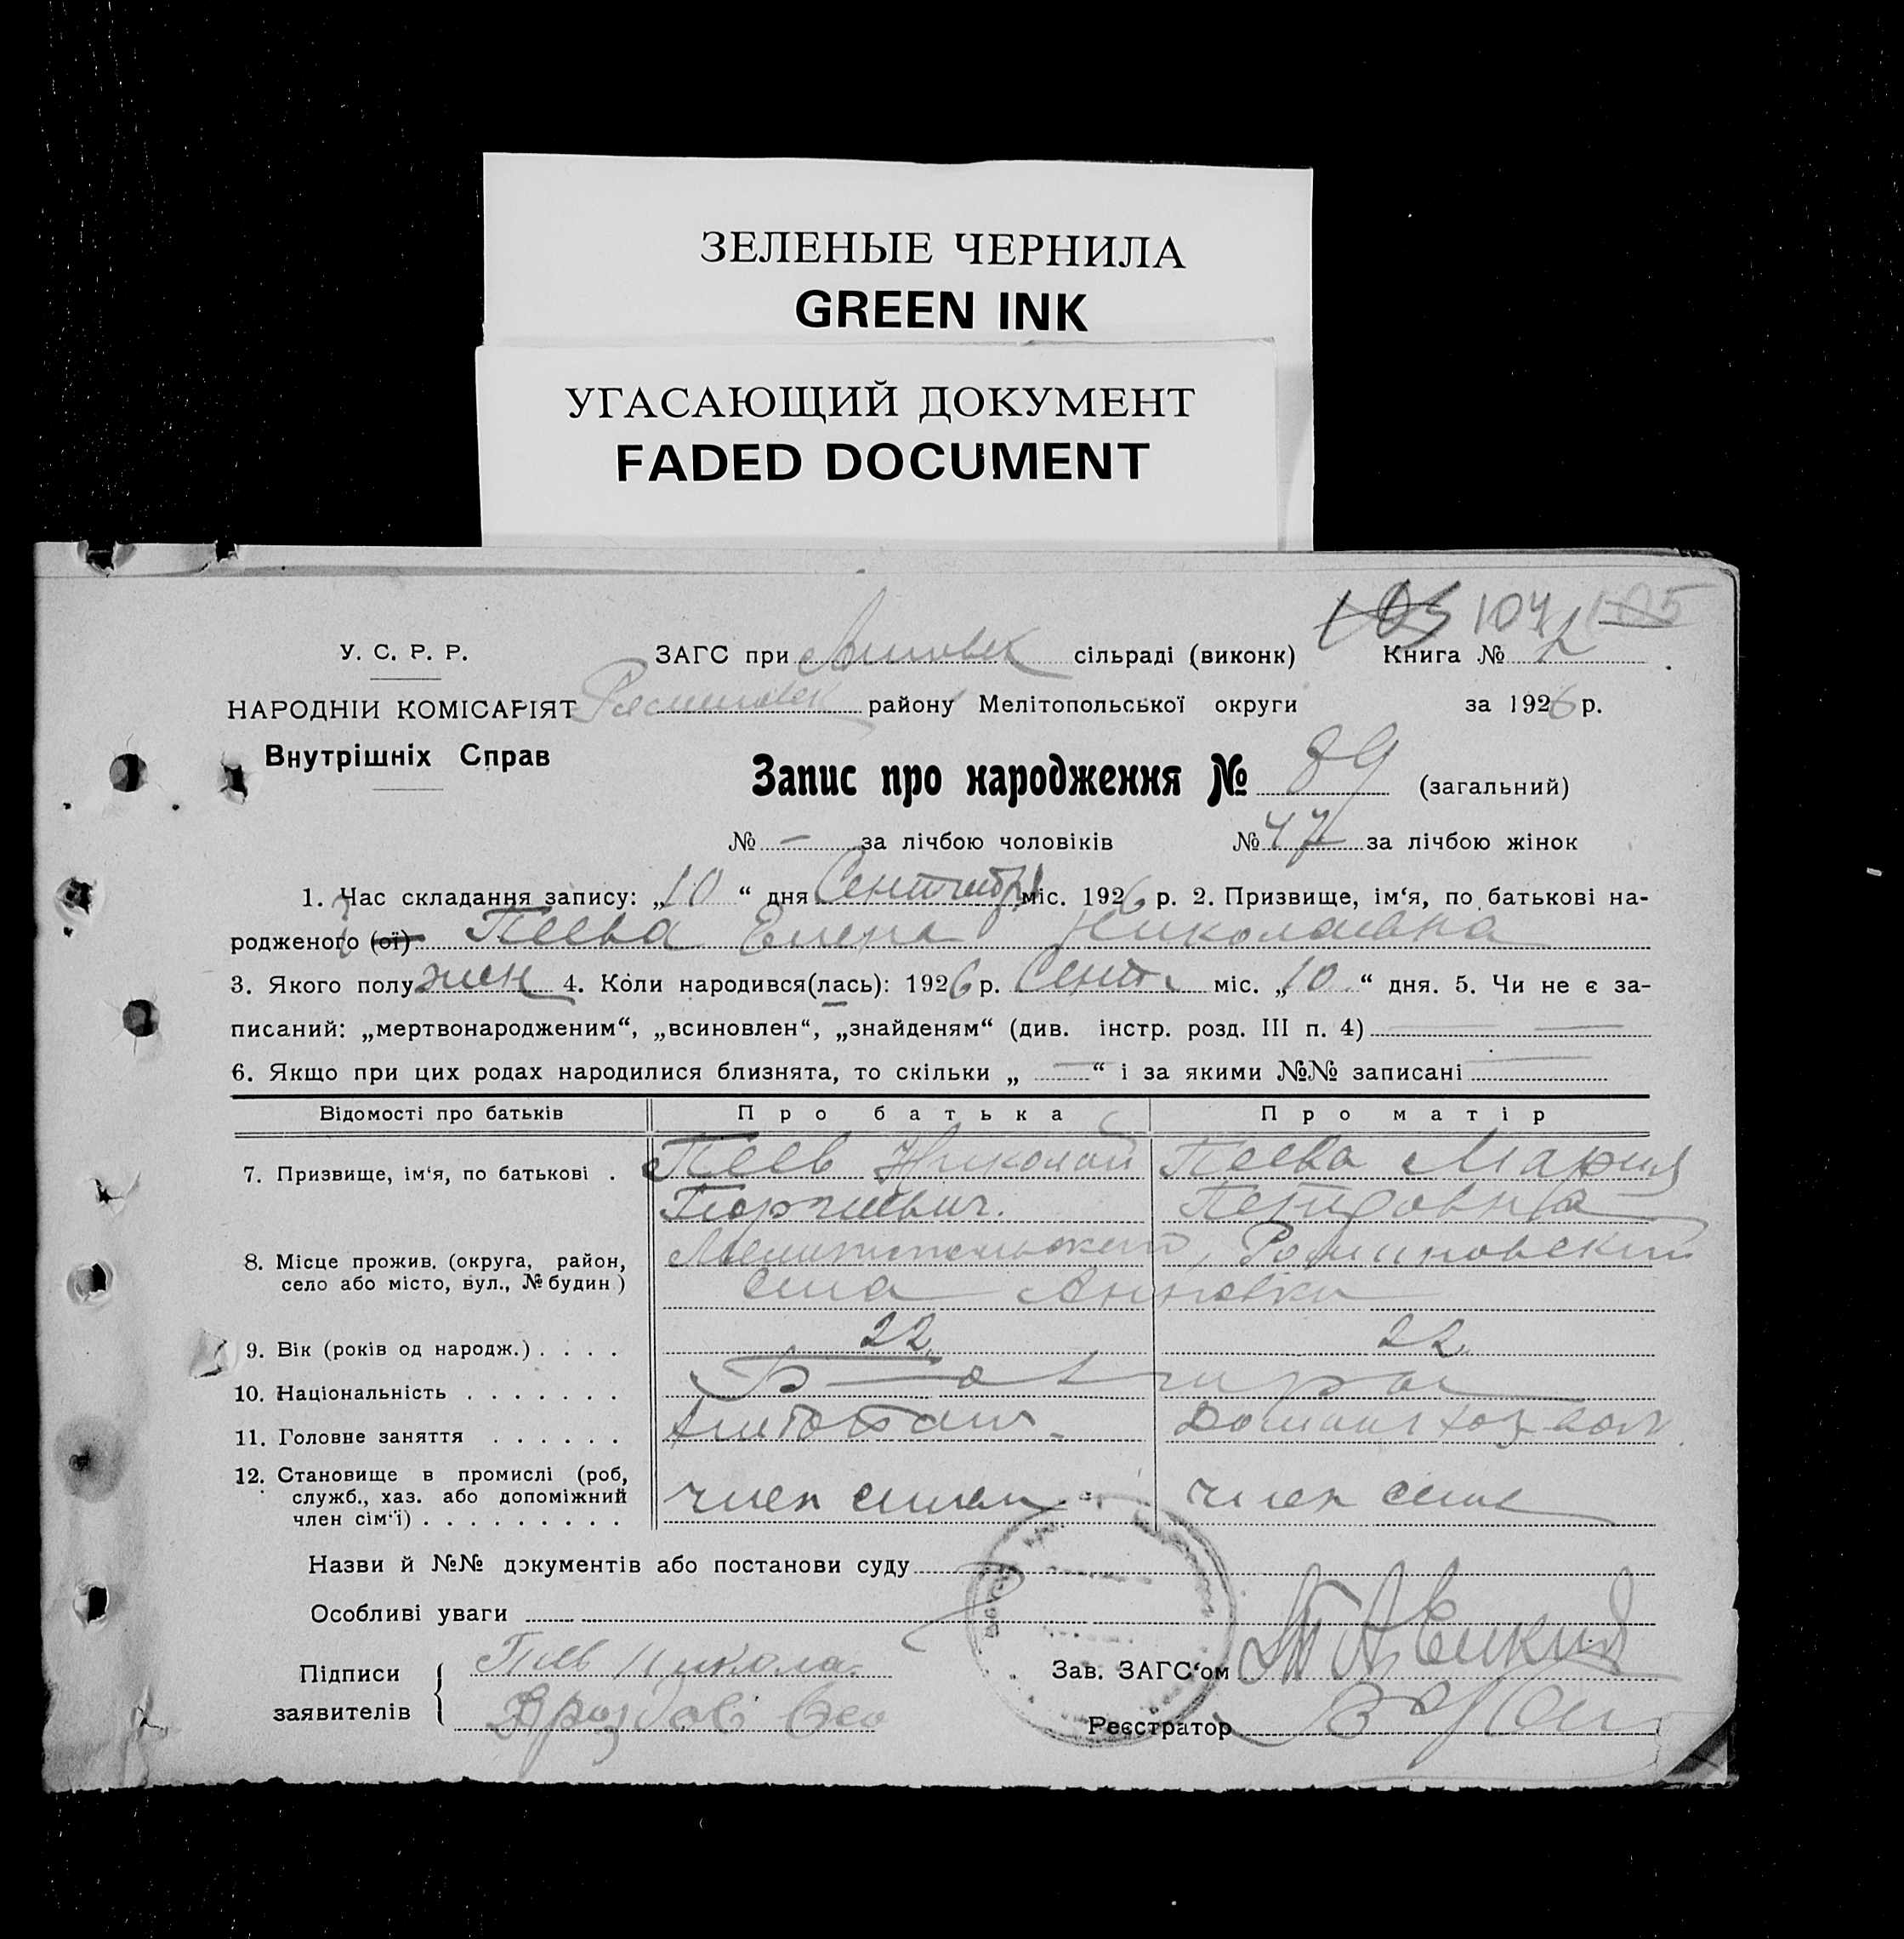 ЗЕЛЕНЫЕ ЧЕРНИЛА
GREEN INK
УГАСАЮЩИЙ ДОКУМЕНТ
FADED DOCUMENT
105 104 105
У. С. Р. Р.
ЗАГС при сільраді (виконк) Книга № 2
НАРОДНІЙ КОМІСАРІЯТ району Мелітопольської округи за 1926 р.
Внутрішніх Справ
Запис про народження № 89 (загальний)
№ — за лічбою чоловіків № 47 за лічбою жінок
1. Час складання запису: „10“ дня Сентября міс. 1926 р. 2. Призвище, ім‘я, по батькові на-
родженого (ої) Пеева Елена Николаевна
3. Якого полу жен 4. Коли народився(лась): 1926 р. Сент. міс. „10“ дня. 5. Чи не є за-
писаний: „мертвонародженим“, „всиновлен“, „знайденям“ (див. інстр. розд. III п. 4) — —
6. Якщо при цих родах народилися близнята, то скільки „ — “ і за якими №№ записані —
Відомості про батьків Про батька Про матір
7. Призвище, ім‘я, по батькові . Пеев Николай Пеева Мария
Георгиевич.
8. Місце прожив. (округа, район,
село або місто, вул., № будин)
села Анновки
9. Вік (років од народж.) . . . . 22 22
10. Національність . . . . . . .
11. Головне заняття . . . . . .
12. Становище в промислі (роб,
служб., хаз. або допоміжний
член сім‘ї) . . . . . . . . . член семьи член семьи
Назви й №№ документів або постанови суду
Особливі уваги
Підписи Пеев Никола
заявителів Дроздов
Зав. ЗАГС‘ом
Реєстратор